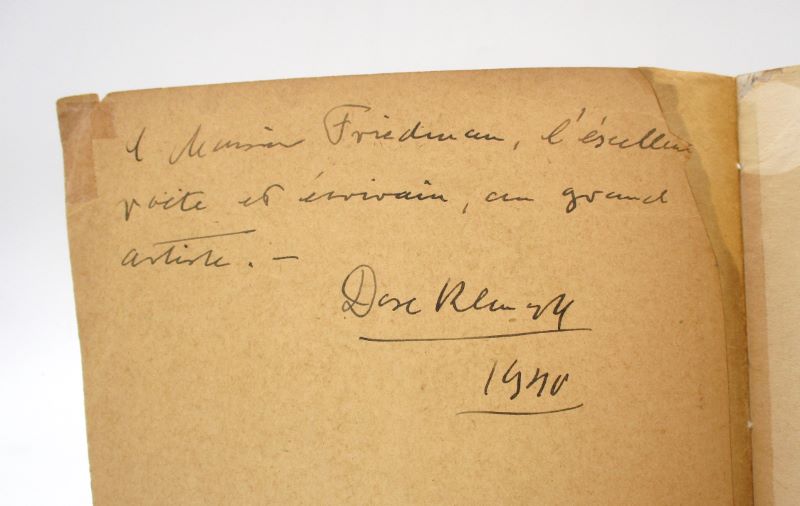 A Monsieur Friedman, l'éxcellent
poète et écrivain, au grand
artiste. —
1940